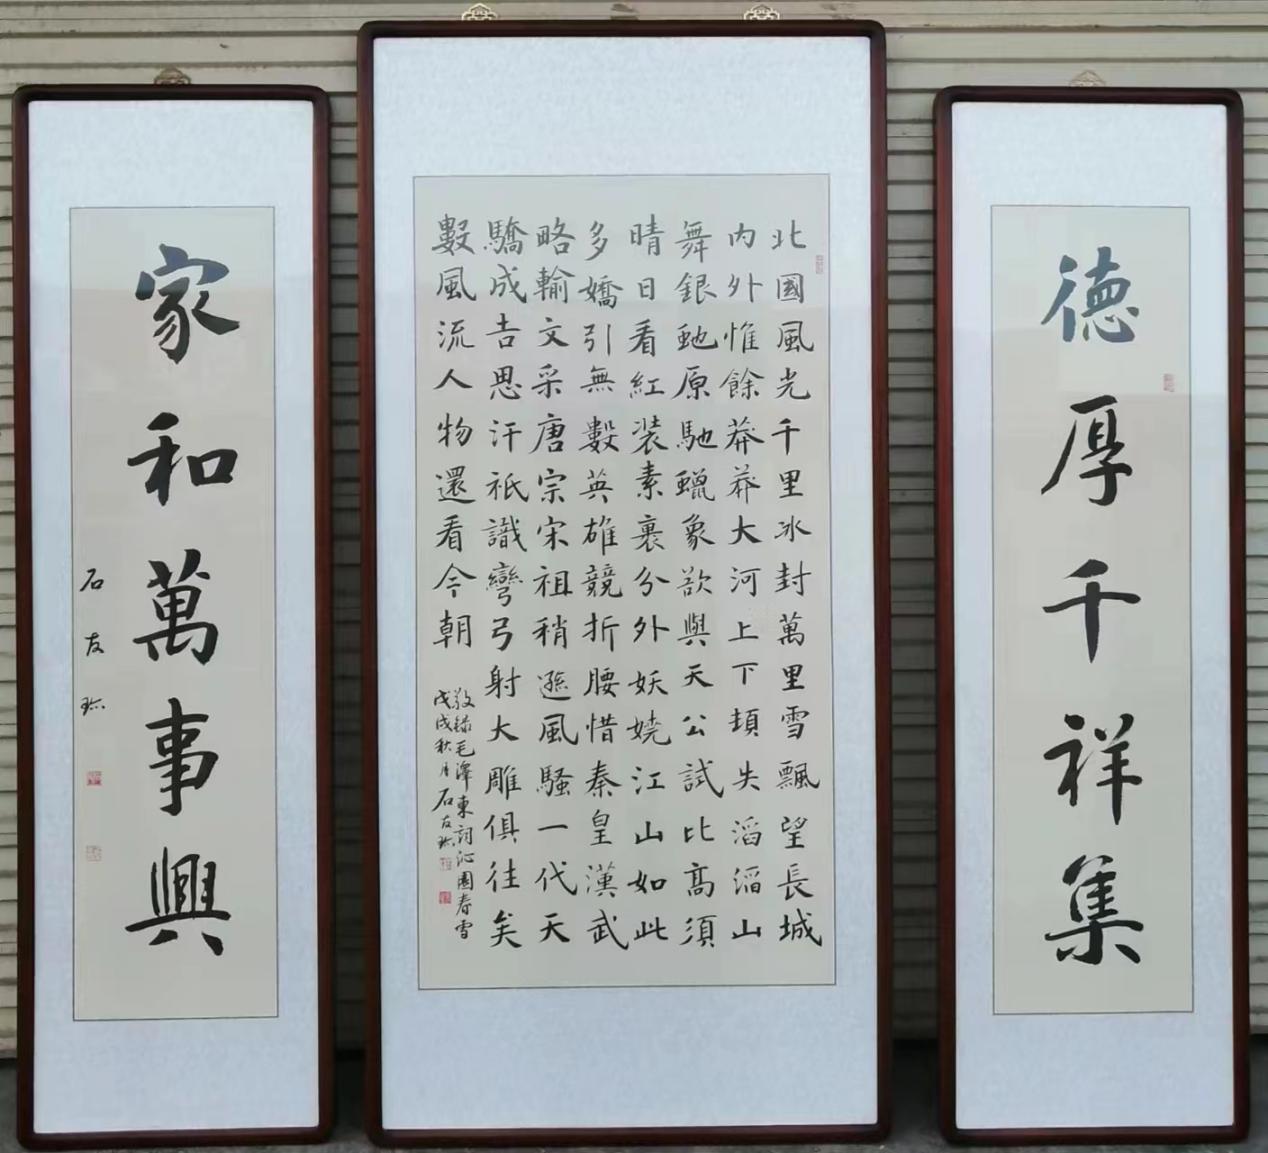 德厚千祥集
北國風光千里冰封萬里雪飄望長城
内外惟餘莽莽大河上下頓失滔滔山
舞銀虵原馳蠟象欲與天公試比高須
晴日看紅装素裹分外妖嬈江山如此
多嬌引無數英雄競折腰惜秦皇漢武
略輸文采唐宗宋祖稍遜風騷一代天
驕成吉思汗祇識彎弓射大雕俱往矣
數風流人物還看今朝
敬録毛澤東詞沁園春雪
戊戌秋月石友
家和萬事興
石友